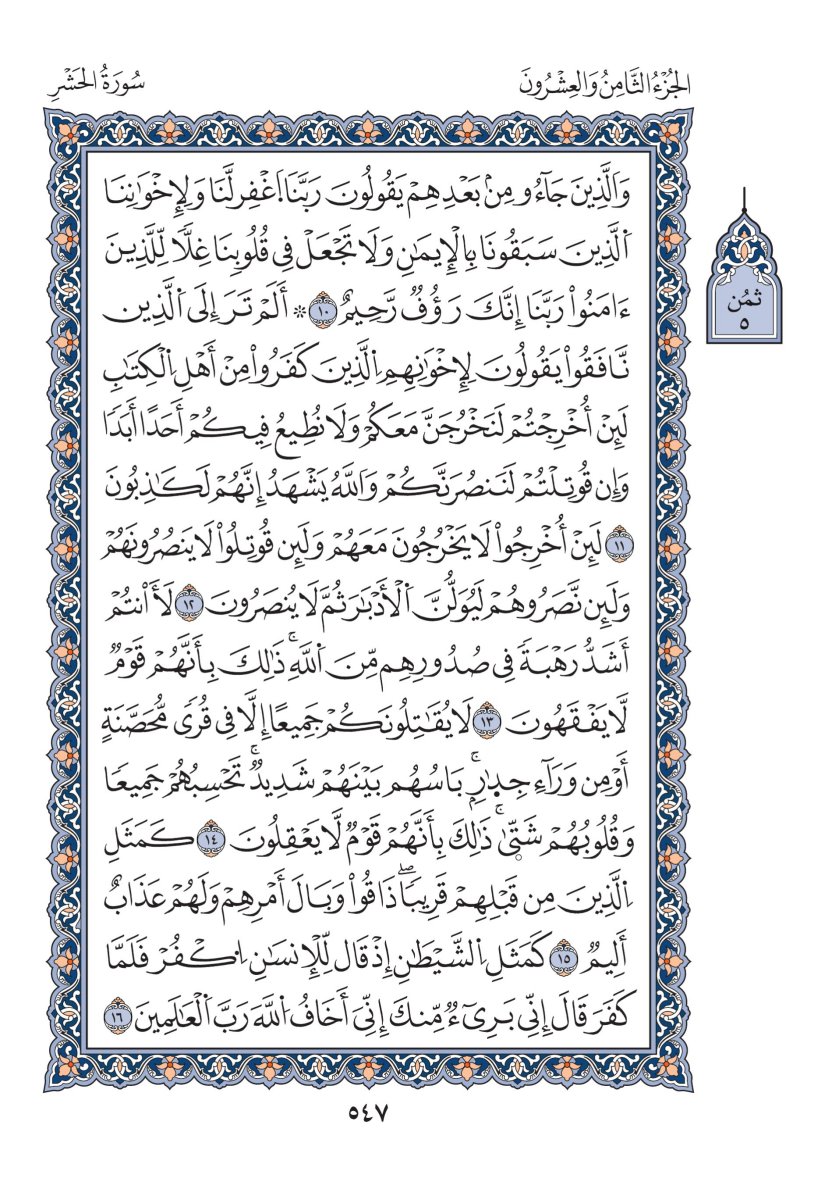 الجُزْءُ الثَّامِنُ وَالعِشْرُونَ
سُورَةُ الحَشْرِ
وَٱلَّذِينَ جَآءُو مِنۢ بَعْدِهِمْ يَقُولُونَ رَبَّنَا ٱغْفِر لَّنَا وَلِإِخْوَٰنِنَا
ٱلَّذِينَ سَبَقُونَا بِالْإِيمَٰنِ وَلَا تَجْعَلْ فِي قُلُوبِنَا غِلًّا لِّلَّذِينَ
ثُمُن
٥
ءَامَنُواْ رَبَّنَا إِنَّكَ رَؤُفٌ رَّحِيمٌ ١٠ ۞ أَلَمْ تَرَ إِلَى ٱلَّذِينَ
نَافَقُواْ يَقُولُونَ لِإِخْوَٰنِهِمِ ٱلَّذِينَ كَفَرُواْ مِنْ أَهْلِ ٱلْكِتَٰبِ
لَئِنْ أُخْرِجْتُمْ لَنَخْرُجَنَّ مَعَكُمْ وَلَا نُطِيعُ فِيكُمْ أَحَدًا أَبَدًا
وَإِن قُوتِلْتُمْ لَنَنصُرَنَّكُمْ وَٱللَّهُ يَشْهَدُ إِنَّهُمْ لَكَٰذِبُونَ
١١ لَئِنْ أُخْرِجُواْ لَا يَخْرُجُونَ مَعَهُمْ وَلَئِن قُوتِلُواْ لَا يَنصُرُونَهُمْ
وَلَئِن نَّصَرُوهُمْ لَيُوَلُّنَّ ٱلْأَدْبَٰرَ ثُمَّ لَا يُنصَرُونَ ١٢ لَأَاْنتُمْ
أَشَدُّ رَهْبَةً فِي صُدُورِهِم مِّنَ ٱللَّهِۚ ذَٰلِكَ بِأَنَّهُمْ قَوْمٌ
لَّا يَفْقَهُونَ ١٣ لَا يُقَٰتِلُونَكُمْ جَمِيعًا إِلَّا فِي قُرًى مُّحَصَّنَةٍ
أَوْ مِن وَرَآءِ جِدَٰرٍۚ بَاسُهُم بَيْنَهُمْ شَدِيدٌۚ تَحْسِبُهُمْ جَمِيعًا
وَقُلُوبُهُمْ شَتَّىٰۚ ذَٰلِكَ بِأَنَّهُمْ قَوْمٌ لَّا يَعْقِلُونَ ١٤ كَمَثَلِ
ٱلَّذِينَ مِن قَبْلِهِمْ قَرِيبًاۖ ذَاقُواْ وَبَالَ أَمْرِهِمْ وَلَهُمْ عَذَابٌ
أَلِيمٌ ١٥ كَمَثَلِ ٱلشَّيْطَٰنِ إِذْ قَالَ لِلْإِنسَٰنِ ٱكْفُرْ فَلَمَّا
كَفَرَ قَالَ إِنِّي بَرِيٓءٌ مِّنكَ إِنِّيَ أَخَافُ ٱللَّهَ رَبَّ ٱلْعَٰلَمِينَ ١٦
٥٤٧